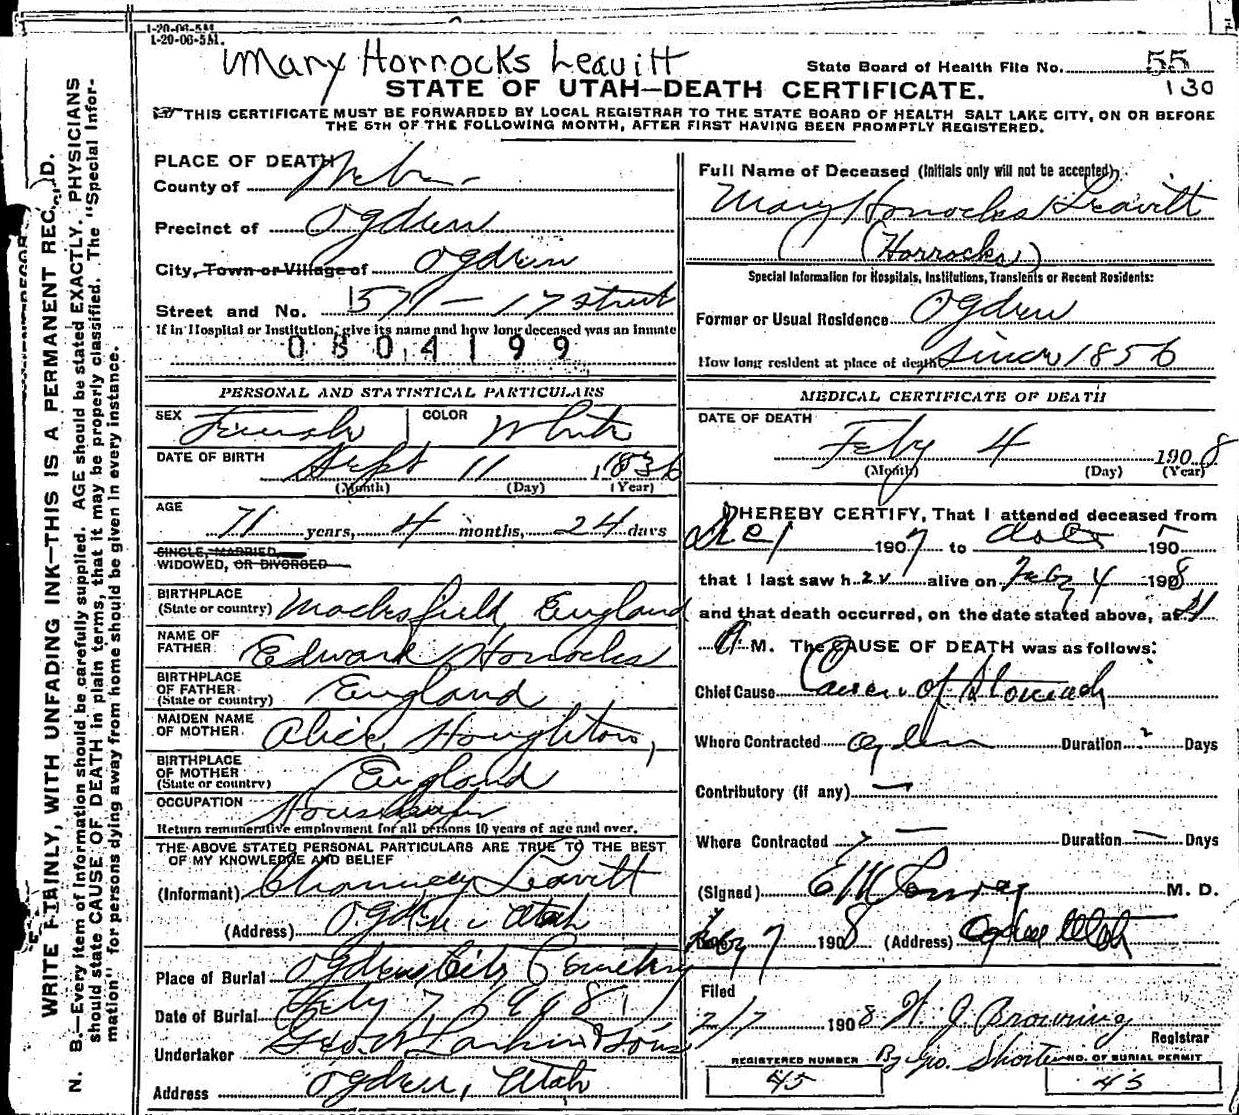 1-20-06-5M.
1-20-06-5M.
Mary Horrocks Leavitt
State Board of Health File No. 55
130
STATE OF UTAH—DEATH CERTIFICATE.
THIS CERTIFICATE MUST BE FORWARDED BY LOCAL REGISTRAR TO THE STATE BOARD OF HEALTH SALT LAKE CITY, ON OR BEFORE
THE 5TH OF THE FOLLOWING MONTH, AFTER FIRST HAVING BEEN PROMPTLY REGISTERED.
WRITE PLAINLY, WITH UNFADING INK—THIS IS A PERMANENT RECORD.
N. B.—Every item of information should be carefully supplied. AGE should be stated EXACTLY. PHYSICIANS
should state CAUSE OF DEATH in plain terms, that it may be properly classified. The "Special Infor-
mation" for persons dying away from home should be given in every instance.
PLACE OF DEATH
County of Weber
Precinct of Ogden
City, Town or Village of Ogden
Street and No. 571 – 17 street
If in Hospital or Institution, give its name and how long deceased was an inmate
0804199
PERSONAL AND STATISTICAL PARTICULARS
SEX Female COLOR White
DATE OF BIRTH Sept 11 1836
(Month) (Day) (Year)
AGE 71 years, 4 months, 24 days
SINGLE, MARRIED,
WIDOWED, OR DIVORCED
BIRTHPLACE
(State or country) Macksfield, England
NAME OF
FATHER Edward Horrocks
BIRTHPLACE
OF FATHER
(State or country) England
MAIDEN NAME
OF MOTHER Alice Houghton,
BIRTHPLACE
OF MOTHER
(State or country) England
OCCUPATION Housekeeper
Return remunerative employment for all persons 10 years of age and over.
THE ABOVE STATED PERSONAL PARTICULARS ARE TRUE TO THE BEST
OF MY KNOWLEDGE AND BELIEF
(Informant) Chauncey Leavitt
(Address) Ogden Utah
Place of Burial Ogden City Cemetery
Date of Burial Feby 7, 1908
Undertaker Geo. W Larkin & Sons
Address Ogden, Utah
Full Name of Deceased (Initials only will not be accepted)
Mary Horrocks Leavitt
(Horrocks)
Special Information for Hospitals, Institutions, Transients or Recent Residents:
Former or Usual Residence Ogden
How long resident at place of death Since 1856
MEDICAL CERTIFICATE OF DEATH
DATE OF DEATH
Feby 4 1908
(Month) (Day) (Year)
I HEREBY CERTIFY, That I attended deceased from
Dec 1 1907 to date 190
that I last saw her alive on Feby 4 1908
and that death occurred, on the date stated above, at
A. M. The CAUSE OF DEATH was as follows:
Chief Cause Cancer of Stomach
Where Contracted Ogden Duration ? Days
Contributory (if any) —
Where Contracted — Duration — Days
(Signed) M. D.
Feby 7 1908 (Address) Ogden Utah
Filed
2/7 1908 W. J. Browning
Registrar
By Geo. Shorten
REGISTERED NUMBER
45
NO. OF BURIAL PERMIT
45